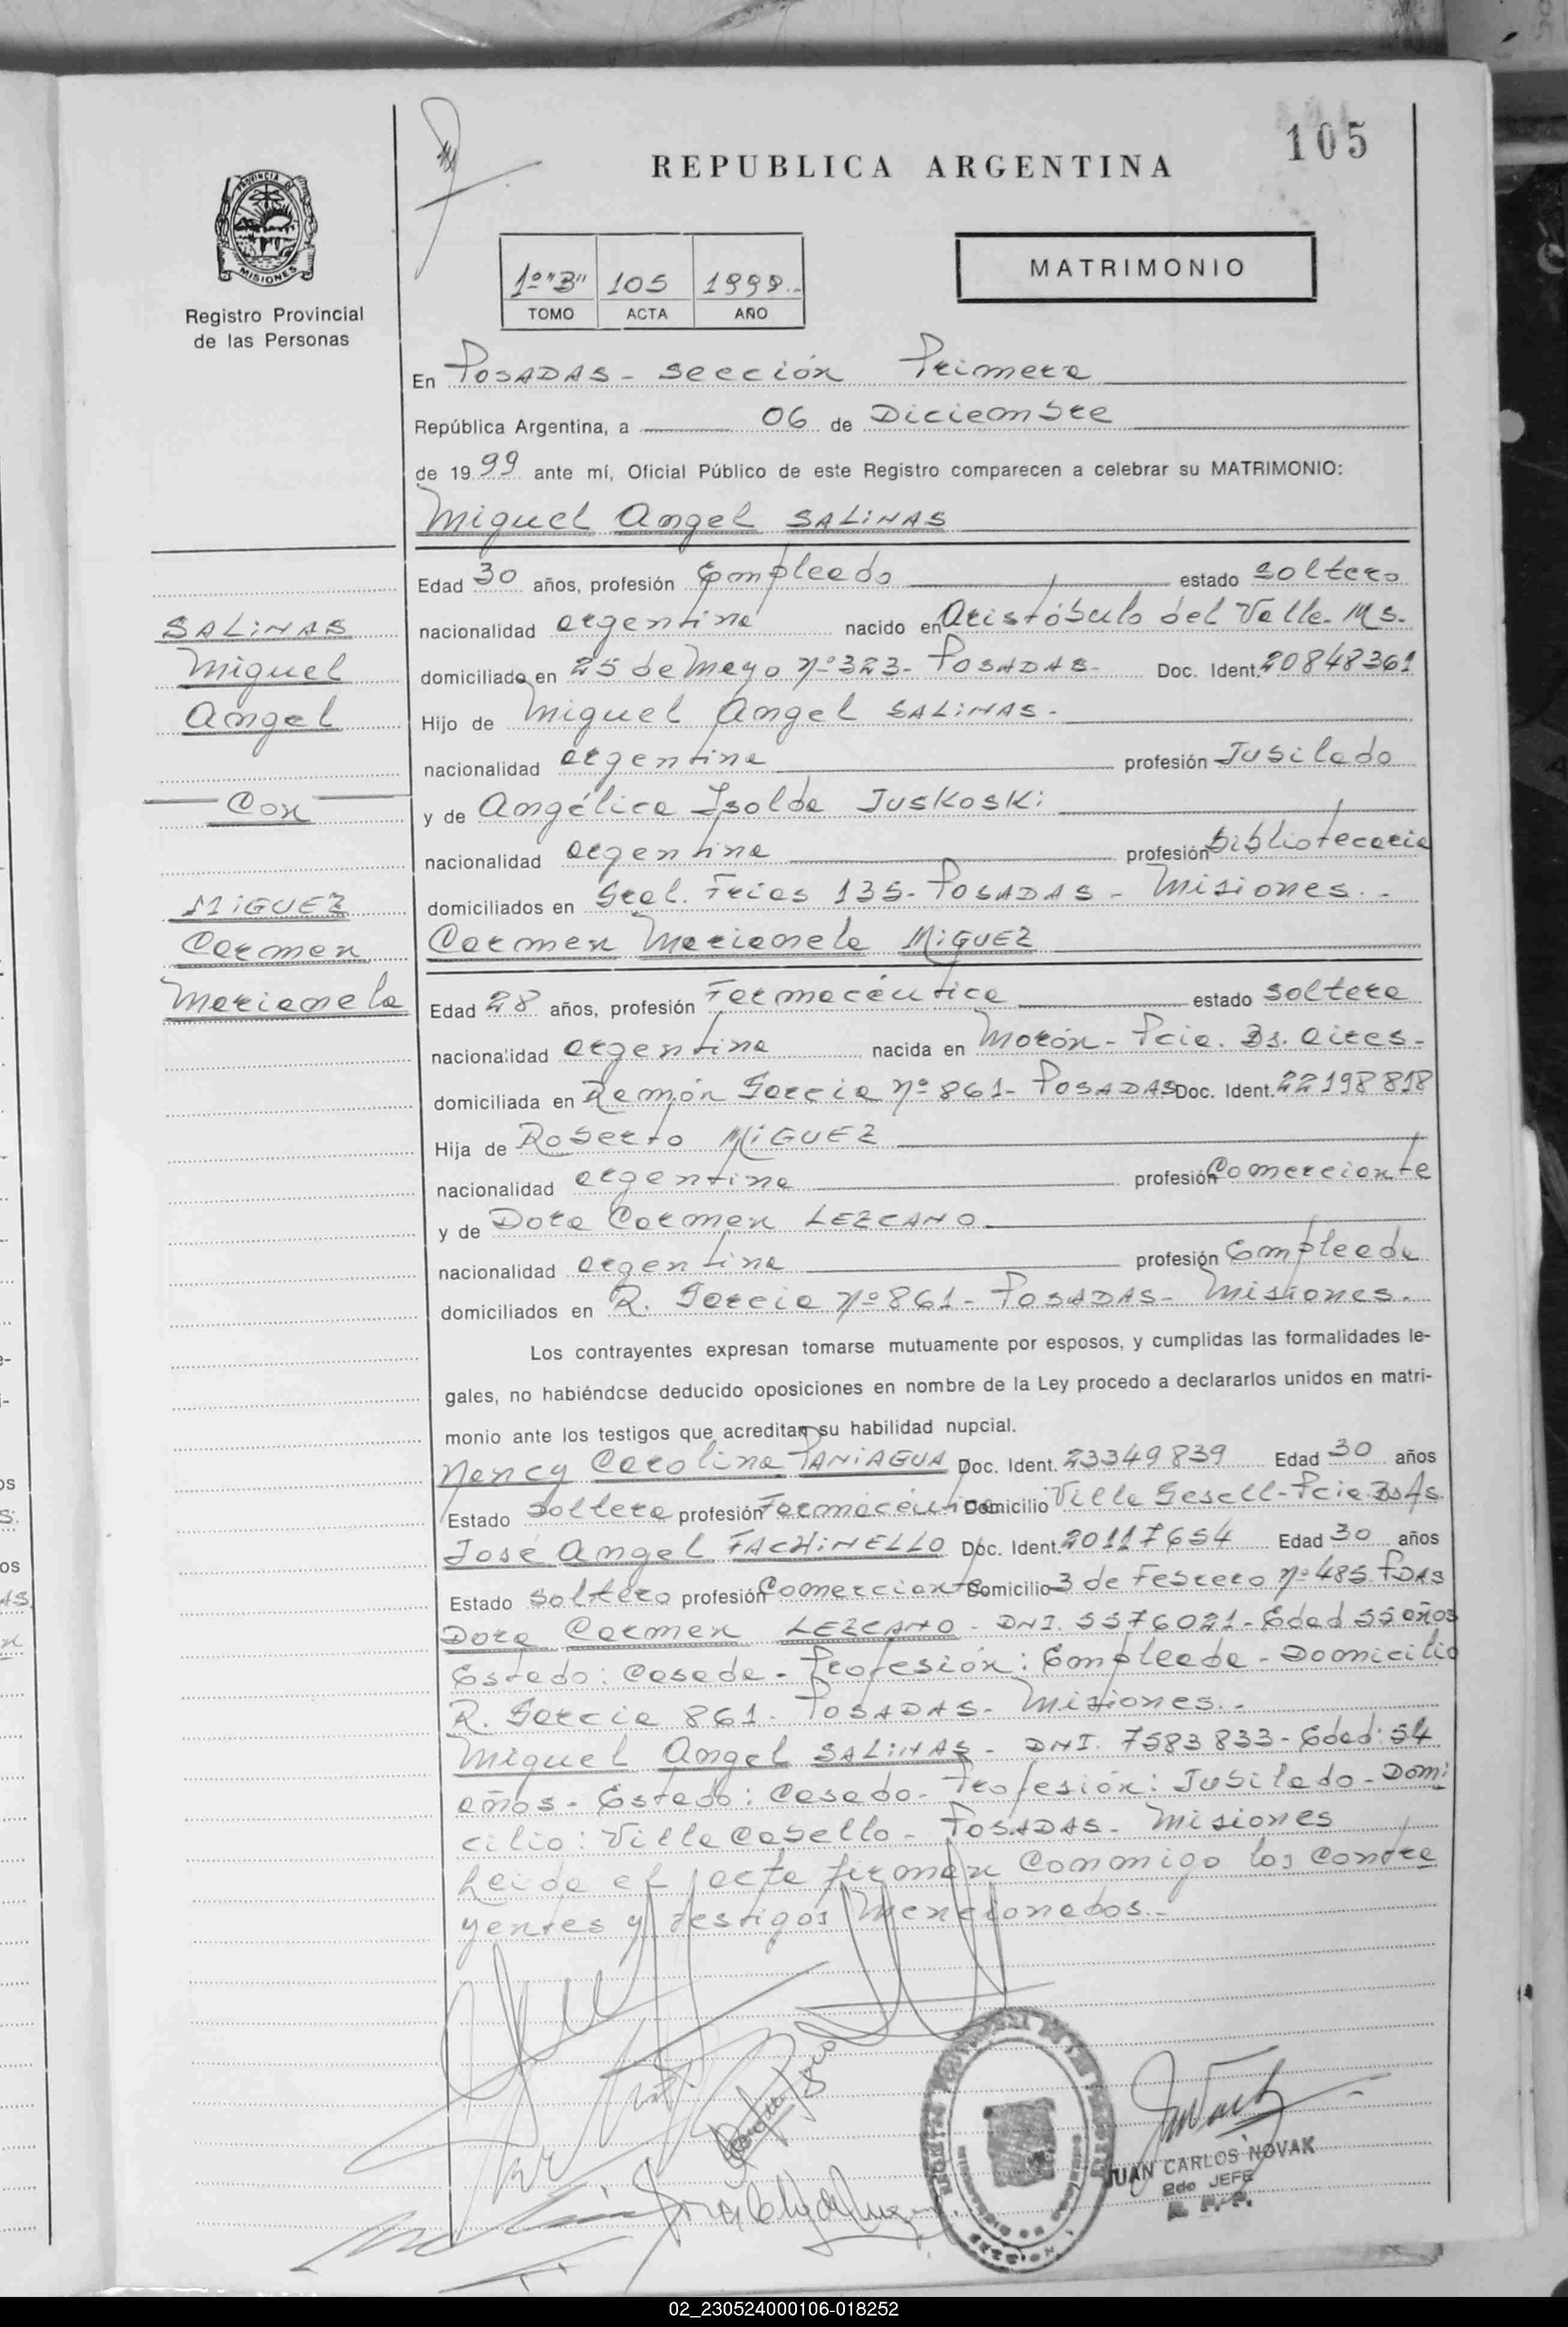 105
REPUBLICA ARGENTINA
PROVINCIA DE
MISIONES
Registro Provincial
de las Personas
1º "B" 105 1999.-
TOMO ACTA AÑO
MATRIMONIO
En POSADAS - Sección Primera
República Argentina, a 06 de Diciembre
de 1999 ante mí, Oficial Público de este Registro comparecen a celebrar su MATRIMONIO:
Miguel Angel SALINAS
Edad 30 años, profesión Empleado estado soltero
nacionalidad argentina nacido en Aristóbulo del Valle. Ms.
domiciliado en 25 de Mayo nº 323- POSADAS- Doc. Ident. 20848361
Hijo de Miguel Angel SALINAS.-
nacionalidad argentina profesión Jubilado
y de Angélica Isolda Juskoski
nacionalidad argentina profesión bibliotecaria
domiciliados en Gral. Frias 135- POSADAS - Misiones.-
SALINAS
Miguel
Angel
Con
MIGUEZ
Carmen
Marianela
Carmen Marianela MIGUEZ
Edad 28 años, profesión Farmacéutica estado soltera
nacionalidad argentina nacida en Morón- Pcia. Bs. Aires-
domiciliada en Ramón Garcia nº 861- POSADAS Doc. Ident. 22198818
Hija de Roberto MIGUEZ
nacionalidad argentina profesión Comerciante
y de Dora Carmen LEZCANO
nacionalidad argentina profesión Empleada
domiciliados en R. Garcia nº 861- POSADAS- Misiones.
Los contrayentes expresan tomarse mutuamente por esposos, y cumplidas las formalidades le-
gales, no habiéndose deducido oposiciones en nombre de la Ley procedo a declararlos unidos en matri-
monio ante los testigos que acreditan su habilidad nupcial.
Nancy Carolina PANIAGUA Doc. Ident. 23349839 Edad 30 años
Estado soltera profesión Farmacéutica Domicilio Villa Gesell- Pcia Bs As.
José Angel FACHINELLO Doc. Ident. 20117654 Edad 30 años
Estado soltero profesión Comerciante Domicilio 3 de Febrero nº 485 PDAS
Dora Carmen LEZCANO - DNI. 5576021- Edad 55 años
Estado: Casada - Profesión: Empleada - Domicilio
R. Garcia 861- POSADAS- Misiones.-
Miguel Angel SALINAS - DNI. 7583833- Edad: 54
años- Estado: Casado- Profesión: Jubilado - Domi
cilio: Villa Cabello - POSADAS- Misiones
Leida el acta firman conmigo los contra
yentes y testigos mencionados.-
JUAN CARLOS NOVAK
2do JEFE
02_230524000106-018252